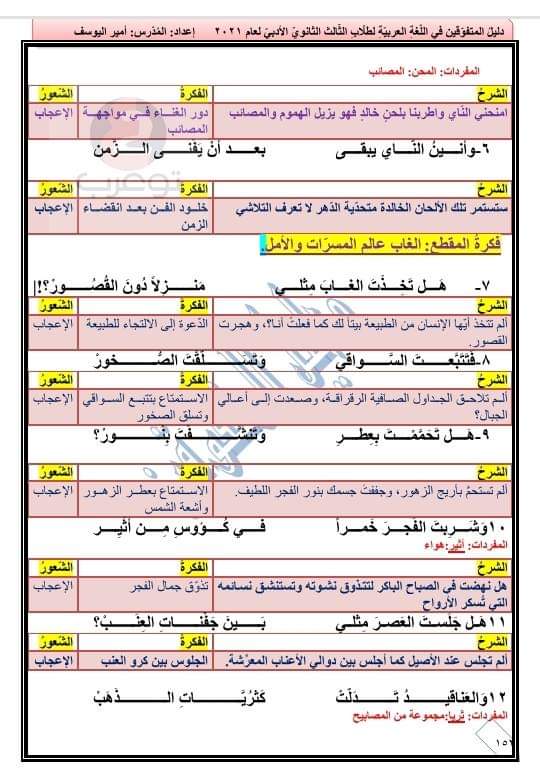 دليل المتفوّقين في اللّغة العربيّة لطلّاب الثّالث الثّانويّ الأدبيّ لعام ٢٠٢١ إعداد: المُدرّس: أمير اليوسف
المفردات: المحن: المصائب
الشّرحُ الفكرةُ الشّعورُ
امنحني النّاي واطربنا بلحنٍ خالدٍ فهو يزيل الهموم والمصائب دور الغناء في مواجهة المصائب الإعجاب
٦-وأنينُ النّاي يبقى بعد أنْ يَفنى الزّمن
الشّرحُ الفكرةُ الشّعورُ
ستستمر تلك الألحان الخالدة متحدّية الدّهر لا تعرف التّلاشي خلود الفن بعد انقضاء الزمن الإعجاب
فكرةُ المقطع: الغاب عالم المسرّات والأمل.
٧- هَل تَخِذْتَ الغابَ مِثلي مَنزِلاً دُونَ القُصُورْ؟!
الشّرحُ الفكرةُ الشّعورُ
ألم تتخذْ أيّها الإنسان من الطبيعة بيتاً لك كما فعلتُ أنا؟، وهجرت القصور. الدّعوة إلى الالتجاء للطبيعة الإعجاب
٨-فَتَتَبَّعتَ السَّواقي وَتَسَلَّقتَ الصُّخورْ
الشّرحُ الفكرةُ الشّعورُ
ألم تلاحق الجداول الصافية الرقراقة، وصعدت إلى أعالي الجبال؟ الاستمتاع بتتبع السواقي وتسلق الصخور الإعجاب
٩-هَل تَحَمَّمْتَ بِعِطرٍ وَتَنَشَّفتَ بِنُورْ؟
الشّرحُ الفكرةُ الشّعورُ
ألم تستحمَّ بأريج الزهور، وجففت جسمك بنور الفجر اللطيف. الاستمتاع بعطر الزهور وأشعة الشمس الإعجاب
١٠وَشَرِبتَ الفَجرَ خَمراً في كُؤوسٍ مِن أثيرْ
المفردات: أثير:هواء
الشّرحُ الفكرةُ الشّعورُ
هل نهضت في الصباح الباكر لتتذوق نشوته وتستنشق نسائمه التي تُسكر الأرواح تذوّق جمال الفجر الإعجاب
١١هَل جَلَستَ العَصرَ مِثلي بَينَ جَفناتِ العِنَبْ؟
الشّرحُ الفكرةُ الشّعورُ
ألم تجلس عند الأصيل كما أجلس بين دوالي الأعناب المعرّشة. الجلوس بين كرو العنب الإعجاب
١٢وَالعَناقيدُ تَدَلَّتْ كَثُرَيّاتِ الذَّهَبْ
المفردات: ثريا:مجموعة من المصابيح